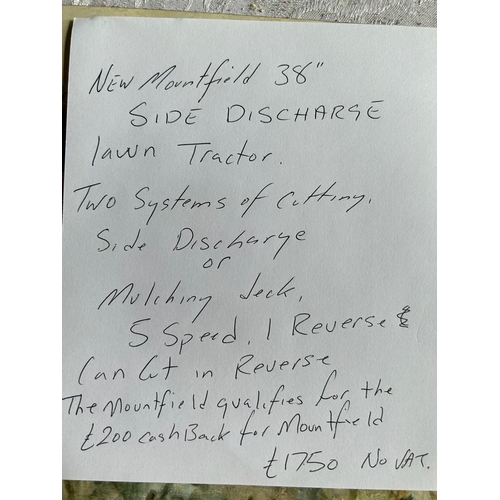 New Mountfield 38"
SIDE DISCHARGE
lawn Tractor.
Two Systems of Cutting,
Side Discharge
or
Mulching deck,
5 Speed, 1 Reverse &
Can Cut in Reverse
The Mountfield qualifies for the
£200 cashBack for Mountfield
£1750 No VAT.